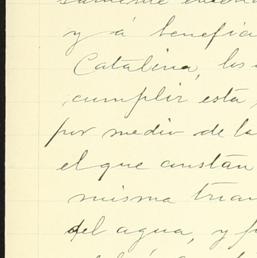 y á benefi
Catalina, los
cumplir esta
por medio de la
el que constan
misma
del agua, y p